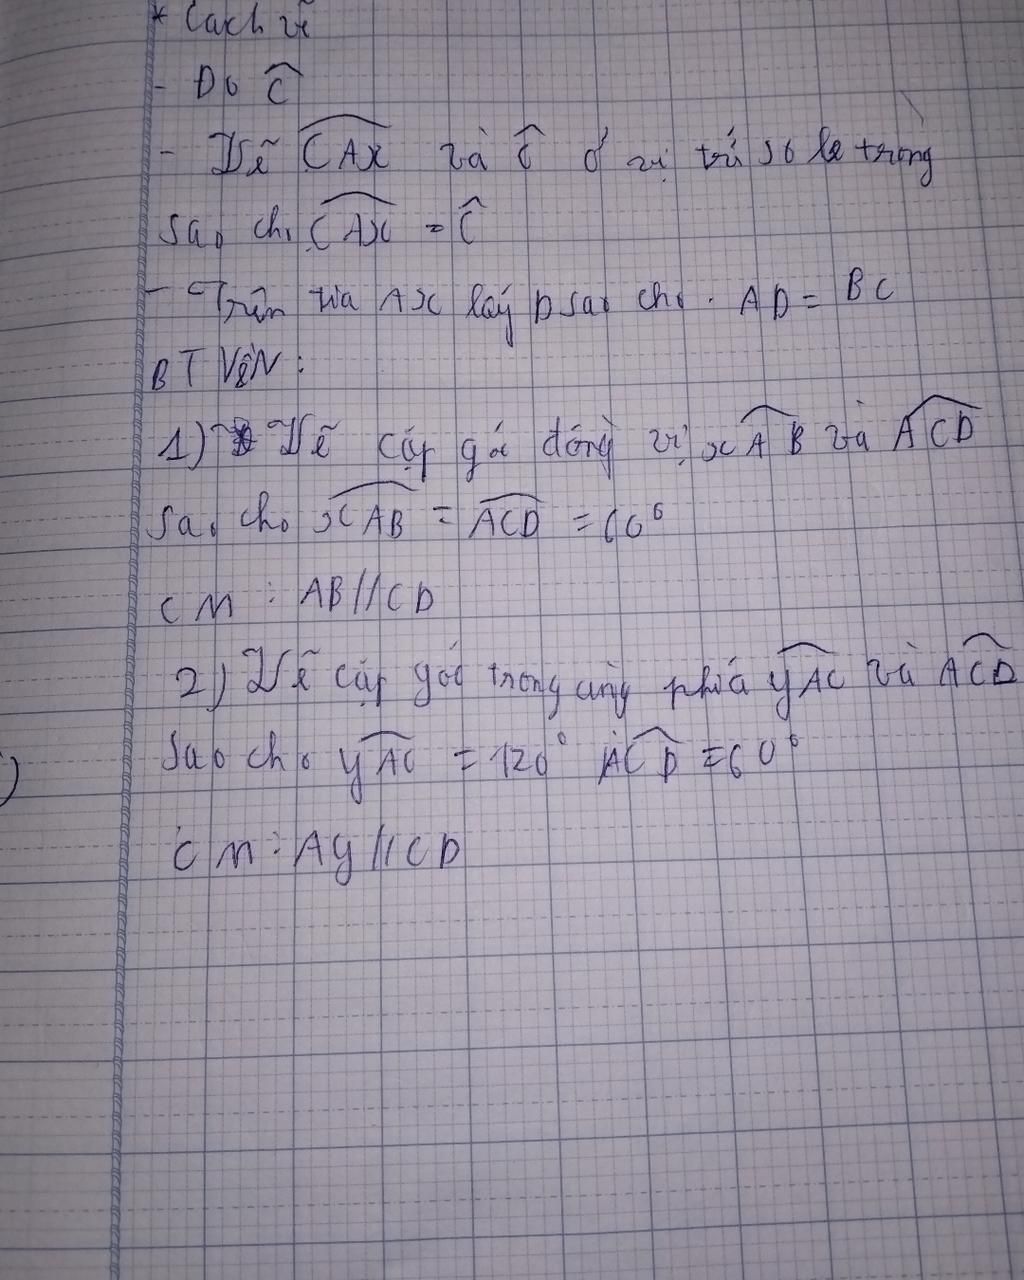 * Cách vẽ
- Đo Ĉ
- Vẽ CAx và Ĉ ở vị trí so le trong
sao cho CAx = Ĉ
- Trên tia Ax lấy D sao cho AD = BC
BTVN:
1) Vẽ cặp góc đồng vị xAB và ACD
sao cho xAB = ACD = 60°
CM: AB // CD
2) Vẽ cặp góc trong cùng phía yAC và ACD
Sao cho yAC = 120° ACD = 60°
CM: Ay // CD
)